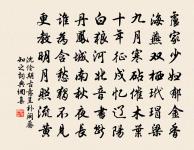 盧家少婦鬱金堂
海燕双棲玳瑁梁
九月寒砧催木葉
十年征戍憶遼陽
白狼河北音書斷
丹鳳城南秋夜長
誰為含愁獨不見
更教明月照流黃
沈佺期古意呈補闕喬
知之詞典網集